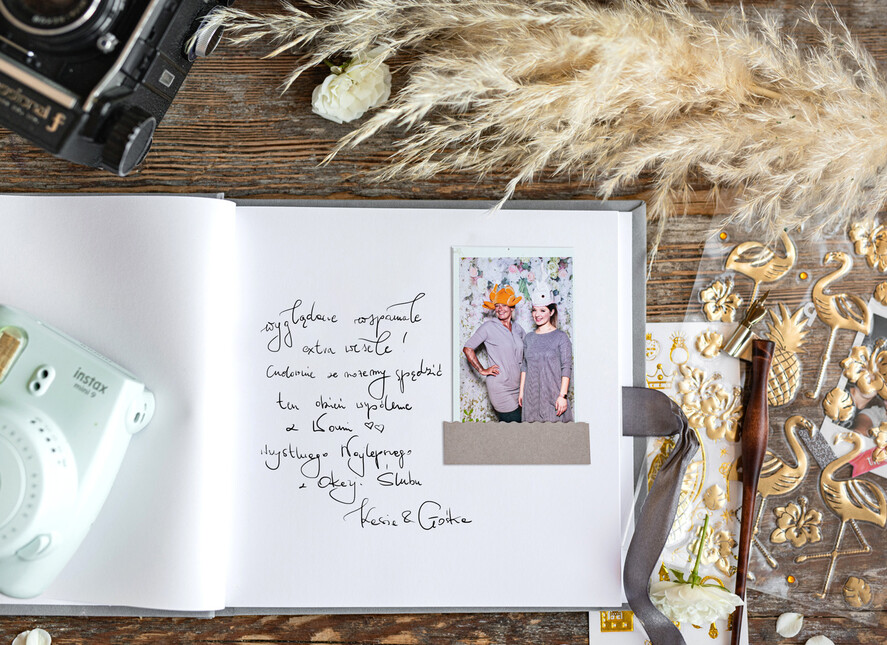 f
instax
mini 9
wyglądacie wspaniale
extra wesele!
Cudownie że możemy spędzić
ten dzień wspólnie
z Wami ♡♡
Wszystkiego Najlepszego
z Okazji Ślubu
Kasia & Gośka